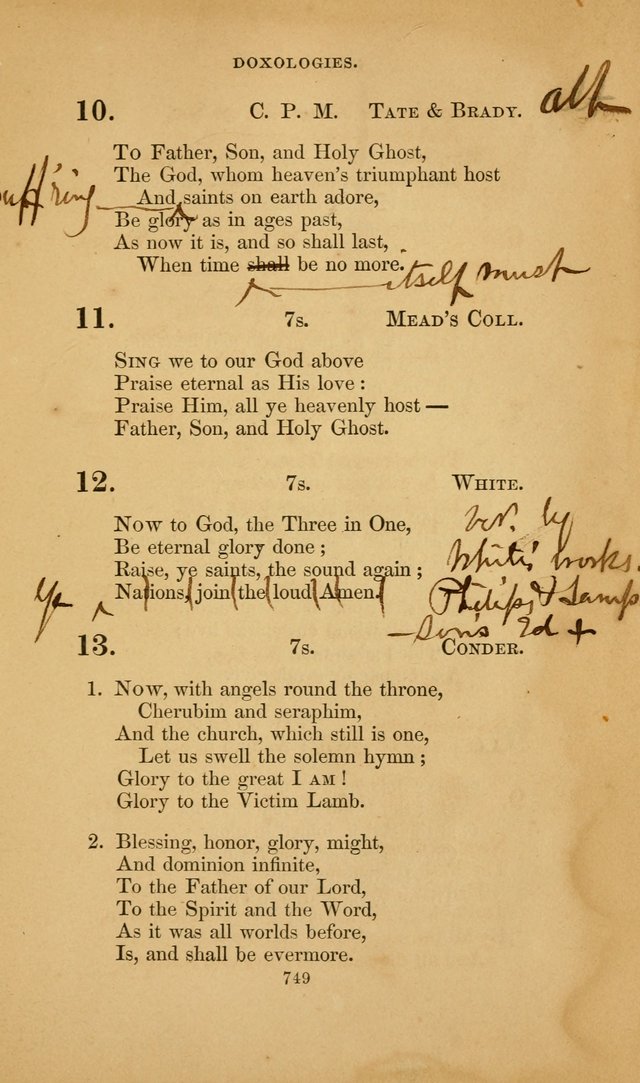 DOXOLOGIES.
10. C. P. M. TATE & BRADY. alt
To Father, Son, and Holy Ghost,
The God, whom heaven's triumphant host
uff'ring
And saints on earth adore,
Be glory as in ages past,
As now it is, and so shall last,
When time shall be no more.
itself must
11. 7s. MEAD'S COLL.
SING we to our God above
Praise eternal as His love:
Praise Him, all ye heavenly host—
Father, Son, and Holy Ghost.
12. 7s. WHITE.
ver. by
White's works.
Now to God, the Three in One,
Be eternal glory done;
Raise, ye saints, the sound again;
ye
Nations, join the loud Amen.
13. 7s. CONDER.
1. Now, with angels round the throne,
Cherubim and seraphim,
And the church, which still is one,
Let us swell the solemn hymn;
Glory to the great I AM!
Glory to the Victim Lamb.
2. Blessing, honor, glory, might,
And dominion infinite,
To the Father of our Lord,
To the Spirit and the Word,
As it was all worlds before,
Is, and shall be evermore.
749